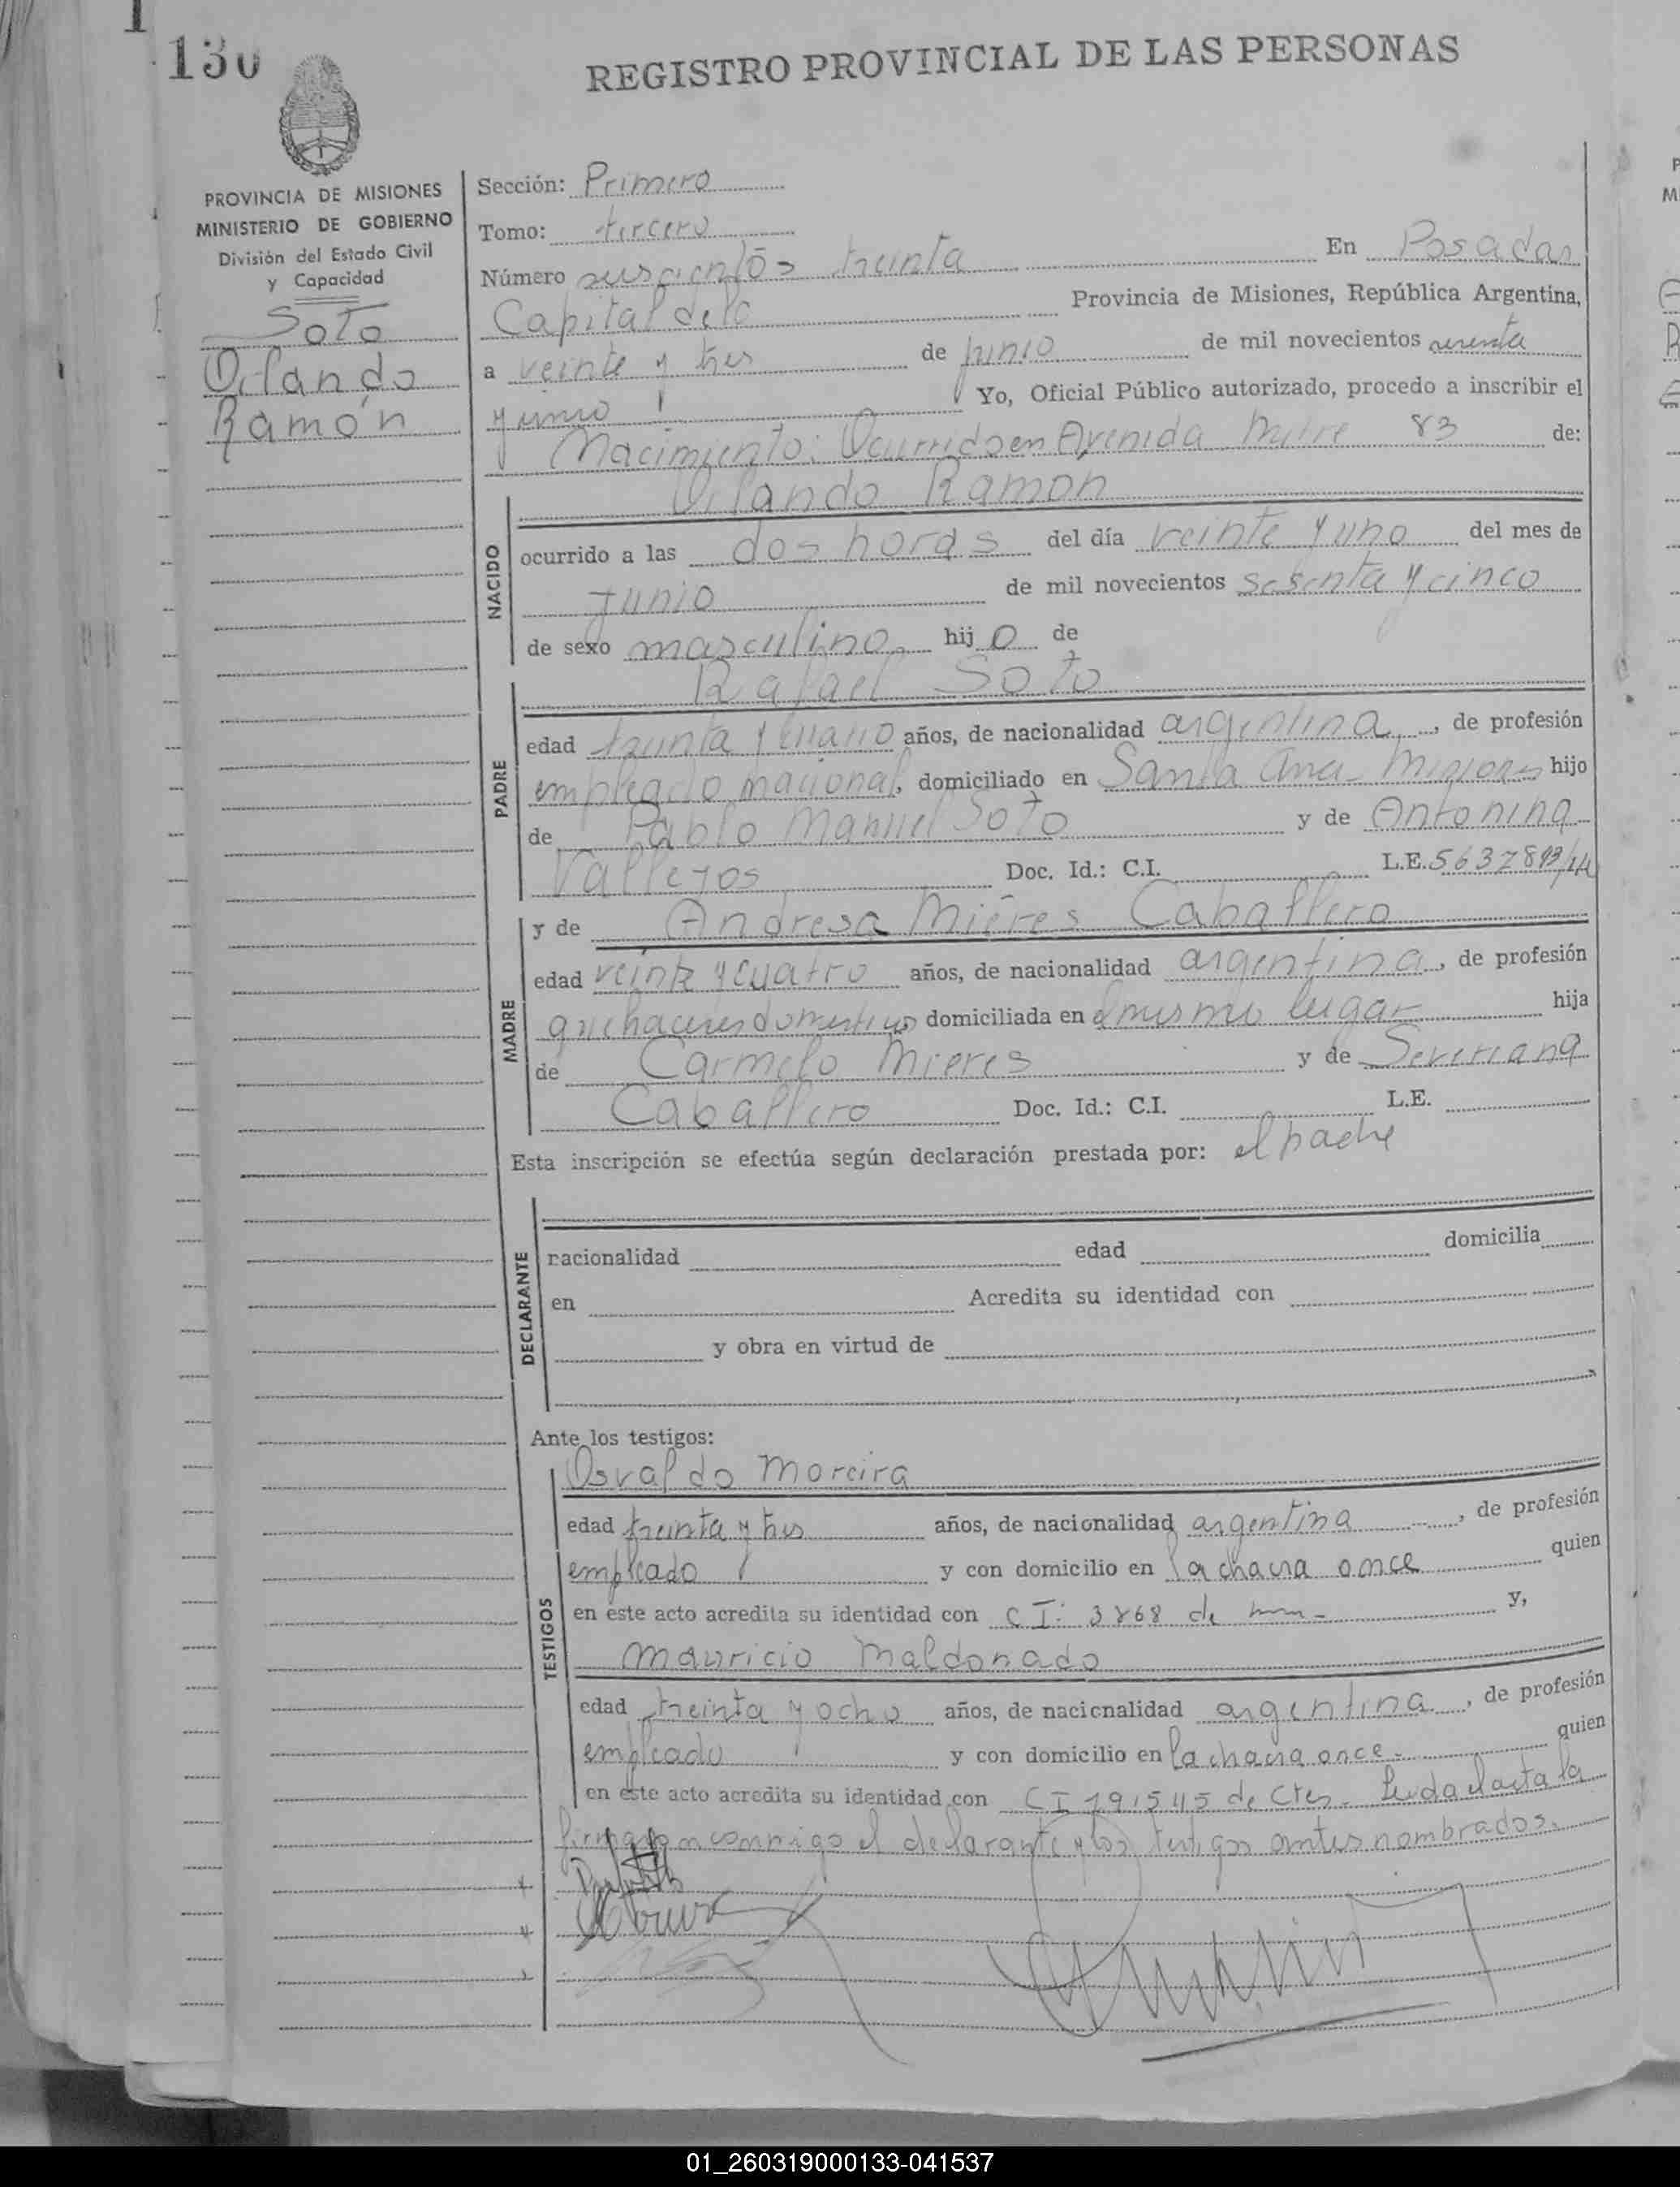 130
REGISTRO PROVINCIAL DE LAS PERSONAS
PROVINCIA DE MISIONES
MINISTERIO DE GOBIERNO
División del Estado Civil
y Capacidad
Soto
Orlando
Ramón
Sección: Primero
Tomo: tercero
Número seiscientos treinta En Posadas
Capital de la Provincia de Misiones, República Argentina,
a veinte y tres de Junio de mil novecientos
Yo, Oficial Público autorizado, procedo a inscribir el
Nacimiento: Ocurrido en Avenida Mitre 83 de:
Orlando Ramon
NACIDO
ocurrido a las dos horas del día veinte y uno del mes de
Junio de mil novecientos sesenta y cinco
de sexo masculino hijo de
Rafael Soto
PADRE
edad treinta y cuatro años, de nacionalidad argentina, de profesión
empleado nacional, domiciliado en Santa Ana - Misiones hijo
de Pablo Manuel Soto y de Antonina
Vallejos Doc. Id.: C.I. L.E.
y de Andresa Mieres Caballero
MADRE
edad veinte y cuatro años, de nacionalidad argentina, de profesión
quehaceres domesticos domiciliada en el mismo lugar hija
de Carmelo Mieres y de Severiana
Caballero Doc. Id.: C.I. L.E.
Esta inscripción se efectúa según declaración prestada por: el padre
DECLARANTE
nacionalidad edad domicilia
en Acredita su identidad con
y obra en virtud de
Ante los testigos:
Osvaldo Moreira
TESTIGOS
edad treinta y tres años, de nacionalidad argentina, de profesión
empleado y con domicilio en la chacra once quien
en este acto acredita su identidad con CI: 3868 de y,
Mauricio Maldonado
edad treinta y ocho años, de nacionalidad argentina, de profesión
empleado y con domicilio en la chacra once - quien
en este acto acredita su identidad con CI 191545 de Ctes. Leida el acta la
firmaron conmigo el declarante y los testigos antes nombrados.
01_260319000133-041537